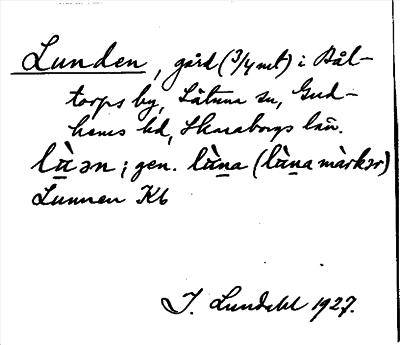 Lunden, gård (3/4 mt) i Bål-
torps by, Låtuna sn, Gud-
hems hd, Skaraborgs län.
lu̠̇̀ən; gen. lu̠̇̀na (lu̠̇̀na màrkər)
Lunnen Kb
J. Lundahl 1927.